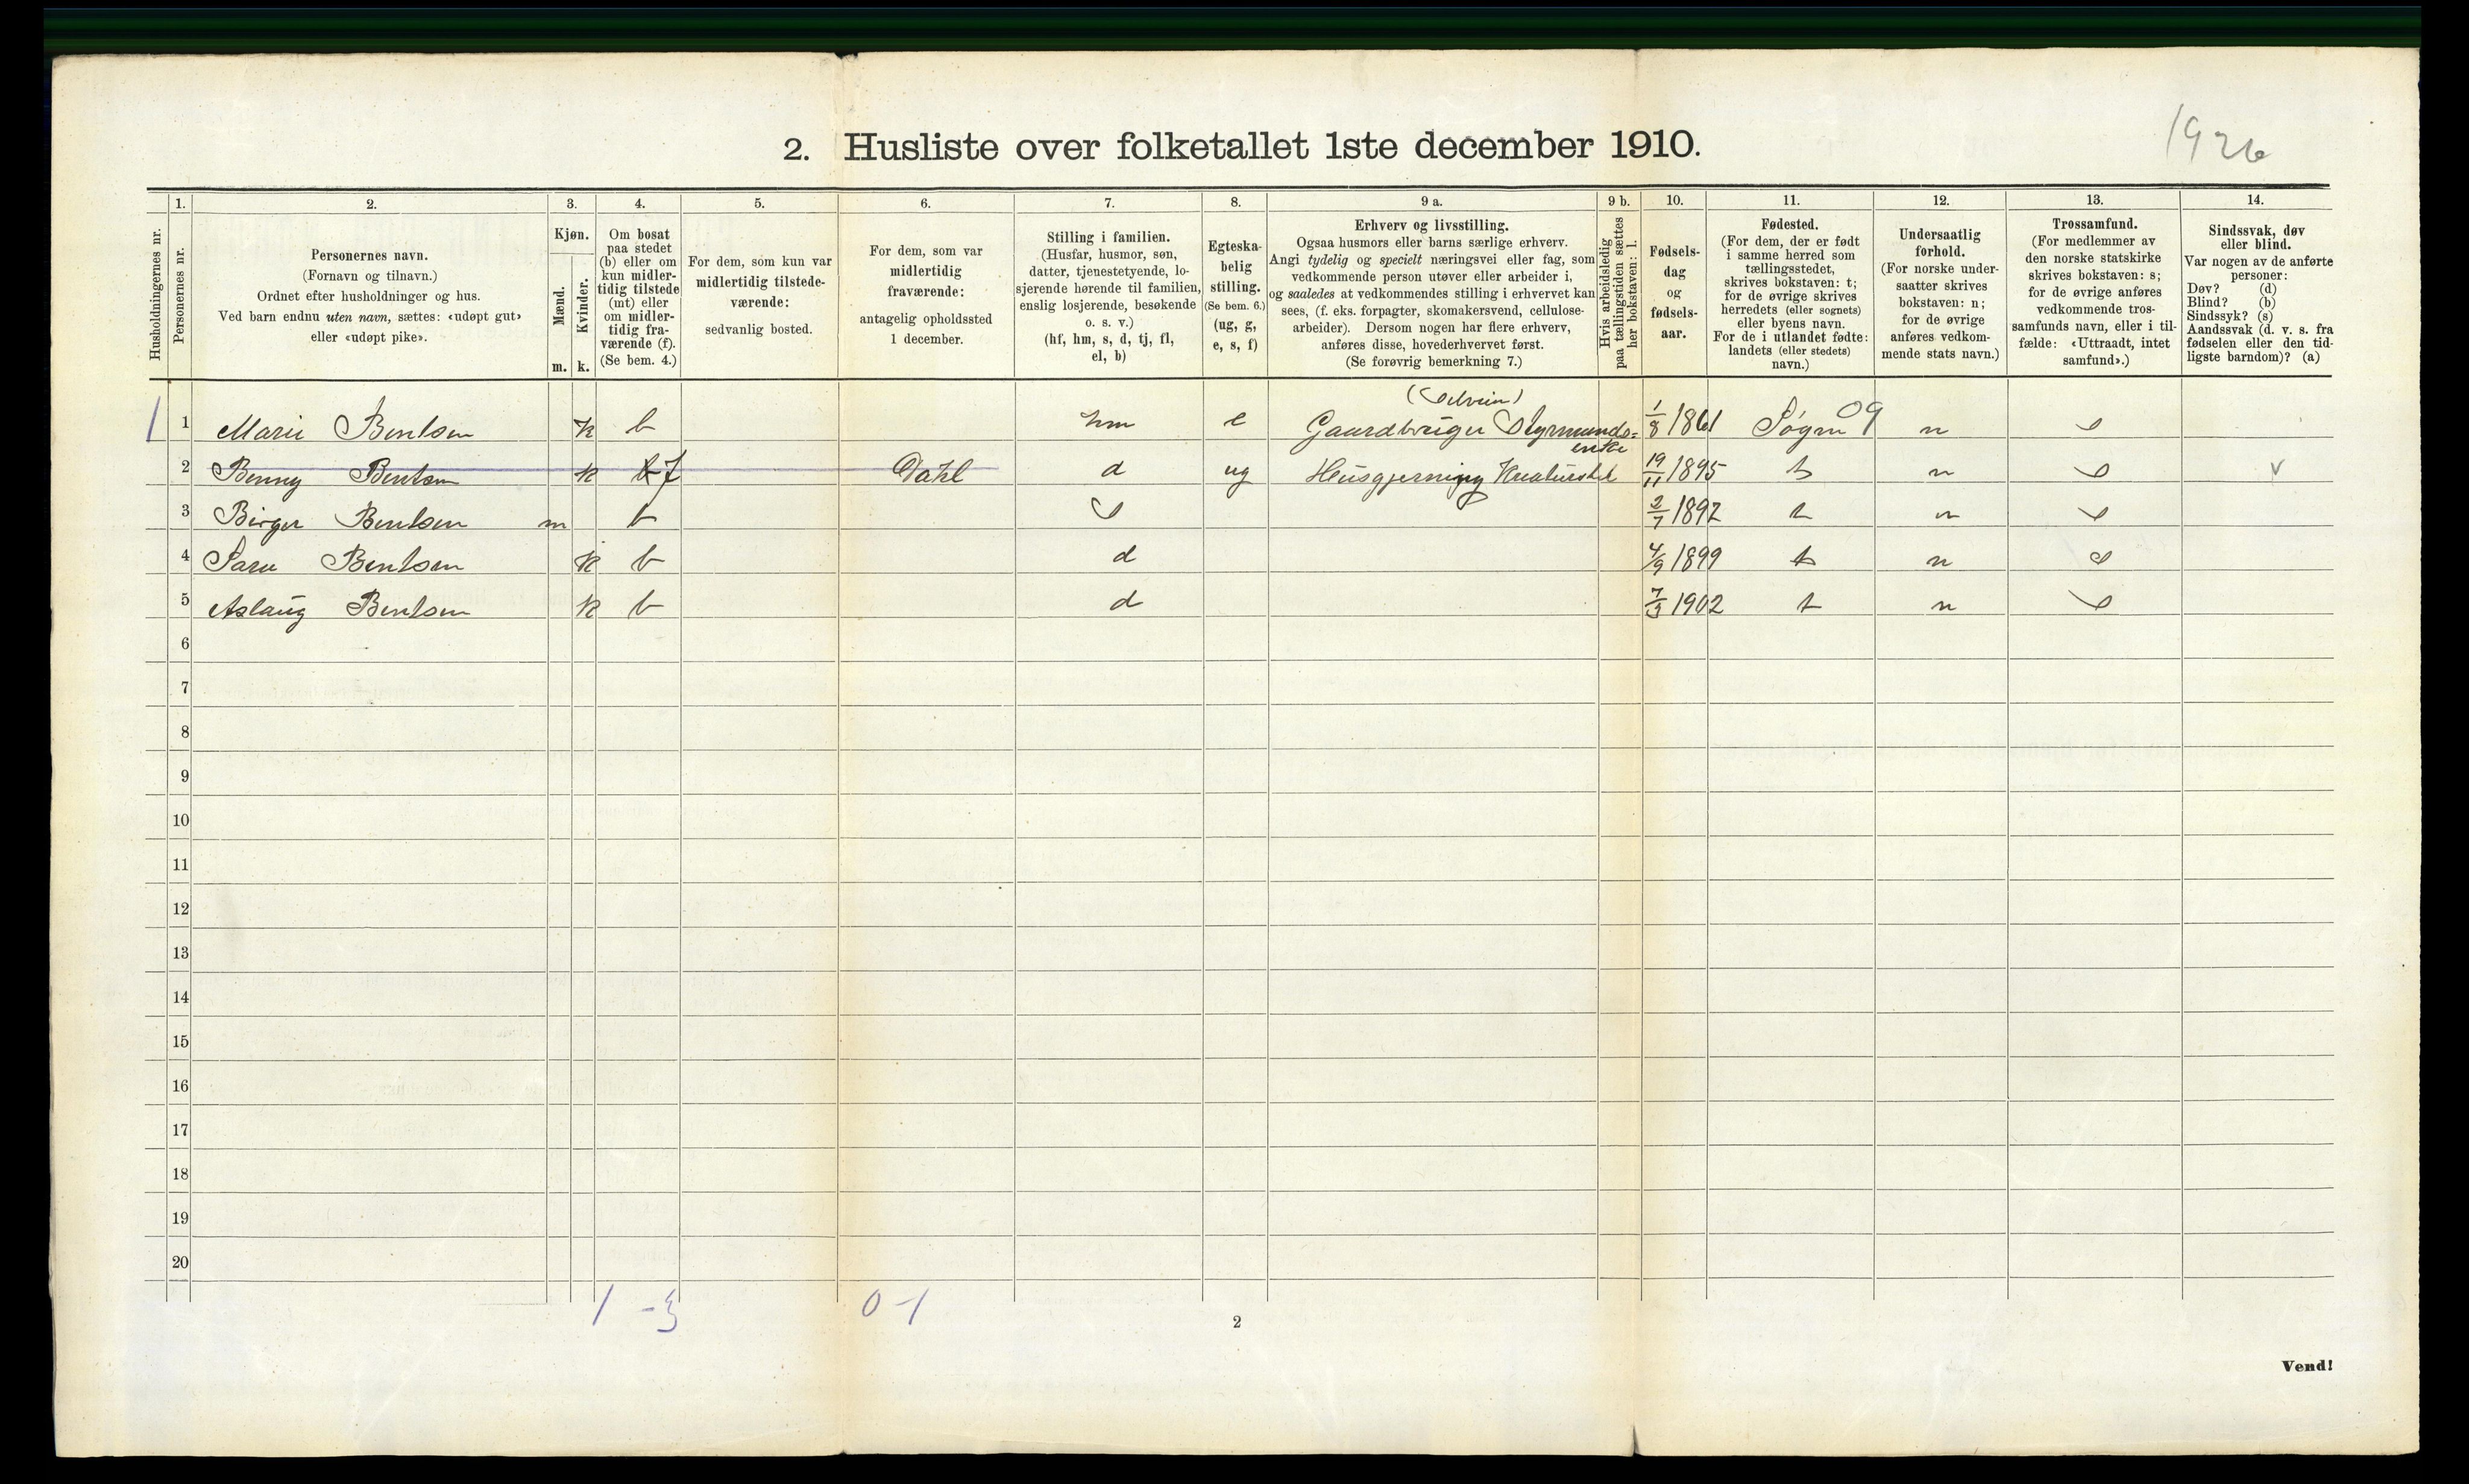 1926
2. Husliste over folketallet 1ste december 1910.
1. 2. 3. 4. 5. 6. 7. 8. 9 a. 9 b. 10. 11. 12. 13. 14.
Husholdningernes nr.
Personernes nr.
Personernes navn.
(Fornavn og tilnavn.)
Ordnet efter husholdninger og hus.
Ved barn endnu uten navn, sættes: «udøpt gut»
eller «udøpt pike».
Kjøn.
Mænd.
Kvinder.
m. k.
Om bosat
paa stedet
(b) eller om
kun midler-
tidig tilstede
(mt) eller
om midler-
tidig fra-
værende (f).
(Se bem. 4.)
For dem, som kun var
midlertidig tilstede-
værende:
sedvanlig bosted.
For dem, som var
midlertidig
fraværende:
antagelig opholdssted
1 december.
Stilling i familien.
(Husfar, husmor, søn,
datter, tjenestetyende, lo-
sjerende hørende til familien,
enslig losjerende, besøkende
o. s. v.)
(hf, hm, s, d, tj, fl,
el, b)
Egteska-
belig
stilling.
(Se bem. 6.)
(ug, g,
e, s, f)
Erhverv og livsstilling.
Ogsaa husmors eller barns særlige erhverv.
Angi tydelig og specielt næringsvei eller fag, som
vedkommende person utøver eller arbeider i,
og saaledes at vedkommendes stilling i erhvervet kan
sees, (f. eks. forpagter, skomakersvend, cellulose-
arbeider). Dersom nogen har flere erhverv,
anføres disse, hovederhvervet først.
(Se forøvrig bemerkning 7.)
Hvis arbeidsledig
paa tællingstiden sættes
her bokstaven: l.
Fødsels-
dag
og
fødsels-
aar.
Fødested.
(For dem, der er født
i samme herred som
tællingsstedet,
skrives bokstaven: t;
for de øvrige skrives
herredets (eller sognets)
eller byens navn.
For de i utlandet fødte:
landets (eller stedets)
navn.)
Undersaatlig
forhold.
(For norske under-
saatter skrives
bokstaven: n;
for de øvrige
anføres vedkom-
mende stats navn.)
Trossamfund.
(For medlemmer av
den norske statskirke
skrives bokstaven: s;
for de øvrige anføres
vedkommende tros-
samfunds navn, eller i til-
fælde: «Uttraadt, intet
samfund».)
Sindssvak, døv
eller blind.
Var nogen av de anførte
personer:
Døv? (d)
Blind? (b)
Sindssyk? (s)
Aandssvak (d. v. s. fra
fødselen eller den tid-
ligste barndom)? (a)
(Selveier)
1 1 Marie Bentsen k b hm e Gaardbruger Styrmands= 1/8 1861 Søgne 09 n s
enke
2 Benny Bentsen k b f Dahl d ug Husgjerning Kreaturstel 19/11 1895 t n s v
3 Birger Bentsen m b s 2/7 1892 t n s
4 Sara Bentsen k b d 4/9 1899 t n s
5 Aslaug Bentsen k b d 7/3 1902 t n s
6
7
8
9
10
11
12
13
14
15
16
17
18
19
20
1 - 3 0 - 1
2
Vend!